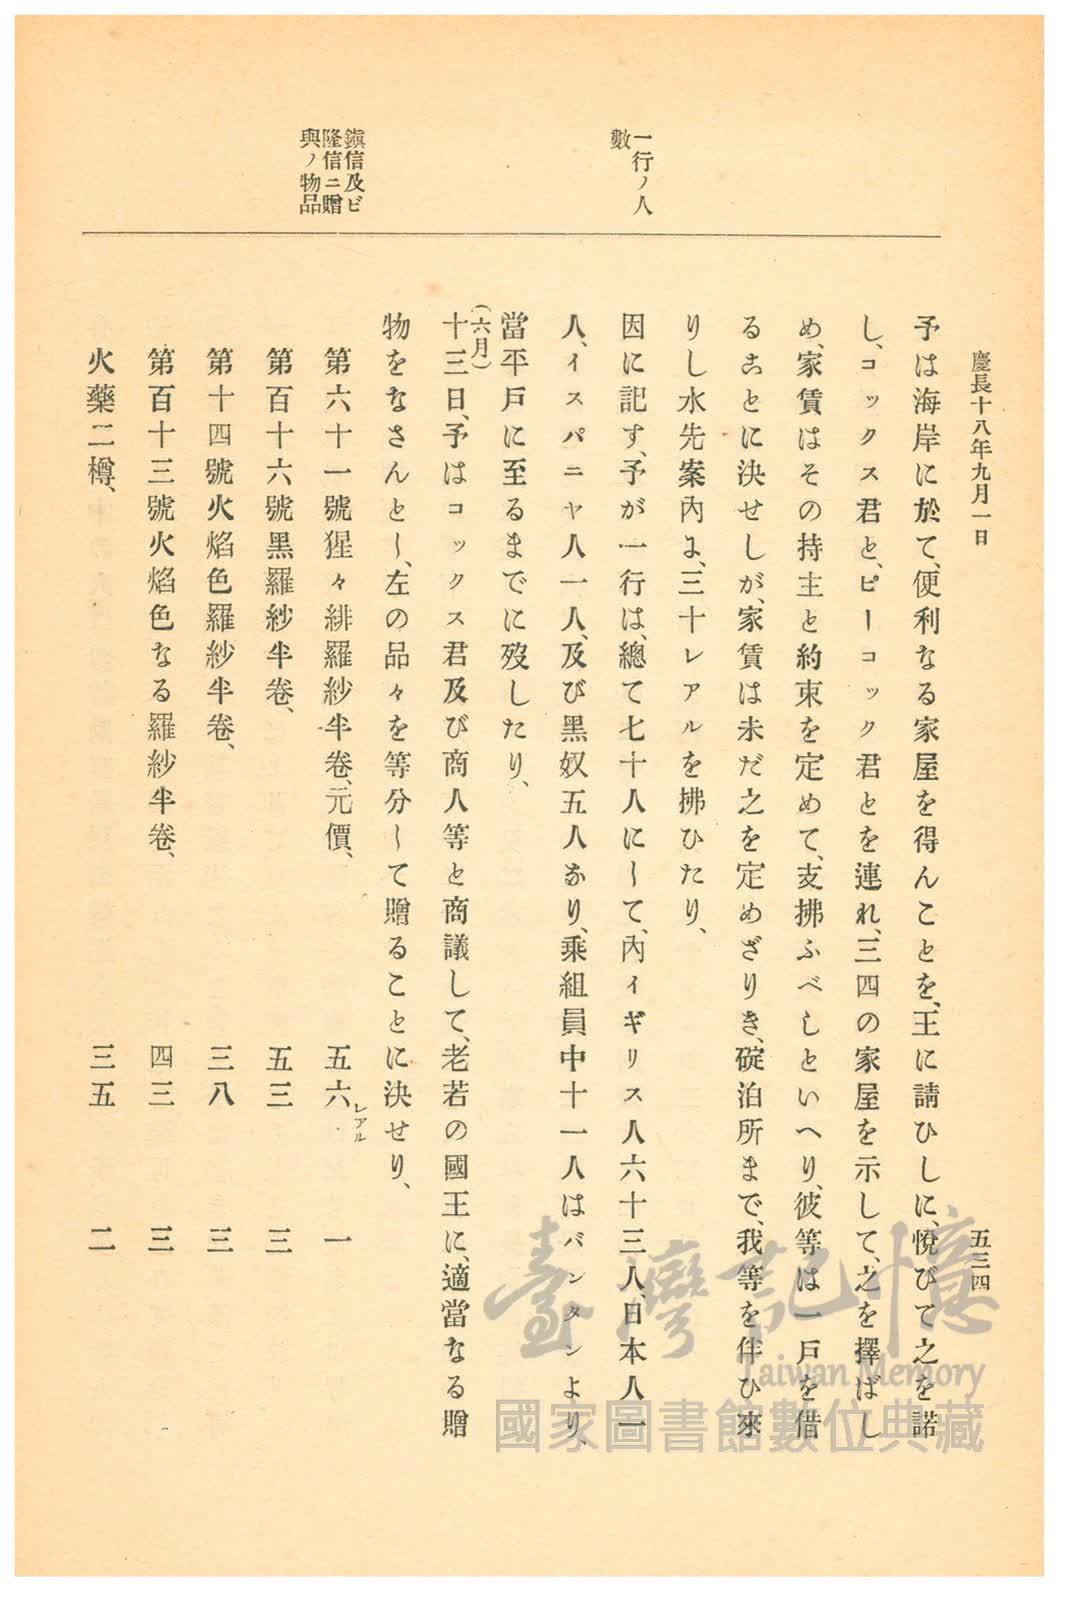 慶長十八年九月一日
五三四
一行ノ人
數
鎭信及ビ
隆信ニ贈
與ノ物品
予は海岸に於て、便利なる家屋を得んことを、王に請ひしに、悅びて之を諾
し、コックス君と、ピーコック君とを連れ、三四の家屋を示して、之を擇ばし
め、家賃はその持主と約束を定めて、支拂ふべしといへり、彼等は一戶を借
ることに決せしが、家賃は未だ之を定めざりき、碇泊所まで、我等を伴ひ來
りし水先案內よ、三十レアルを拂ひたり、
因に記す、予が一行は、總て七十人にして、內イギリス人六十三人、日本人一
人、イスパニヤ人一人、及び黑奴五人なり、乘組員中十一人はバンタンより、
當平戶に至るまでに歿したり、
(六月)
十三日、予はコックス君及び商人等と商議して、老若の國王に、適當なる贈
物をなさんとし、左の品々を等分して贈ることに決せり、
第六十一號猩々緋羅紗半卷、元價、 五六レアル 一
第百十六號黑羅紗半卷、 五三 三
第十四號火焰色羅紗半卷、 三八 三
第百十三號火焰色なる羅紗半卷、 四三 三
火藥二樽、 三五 二
臺灣記憶
Taiwan Memory
國家圖書館數位典藏